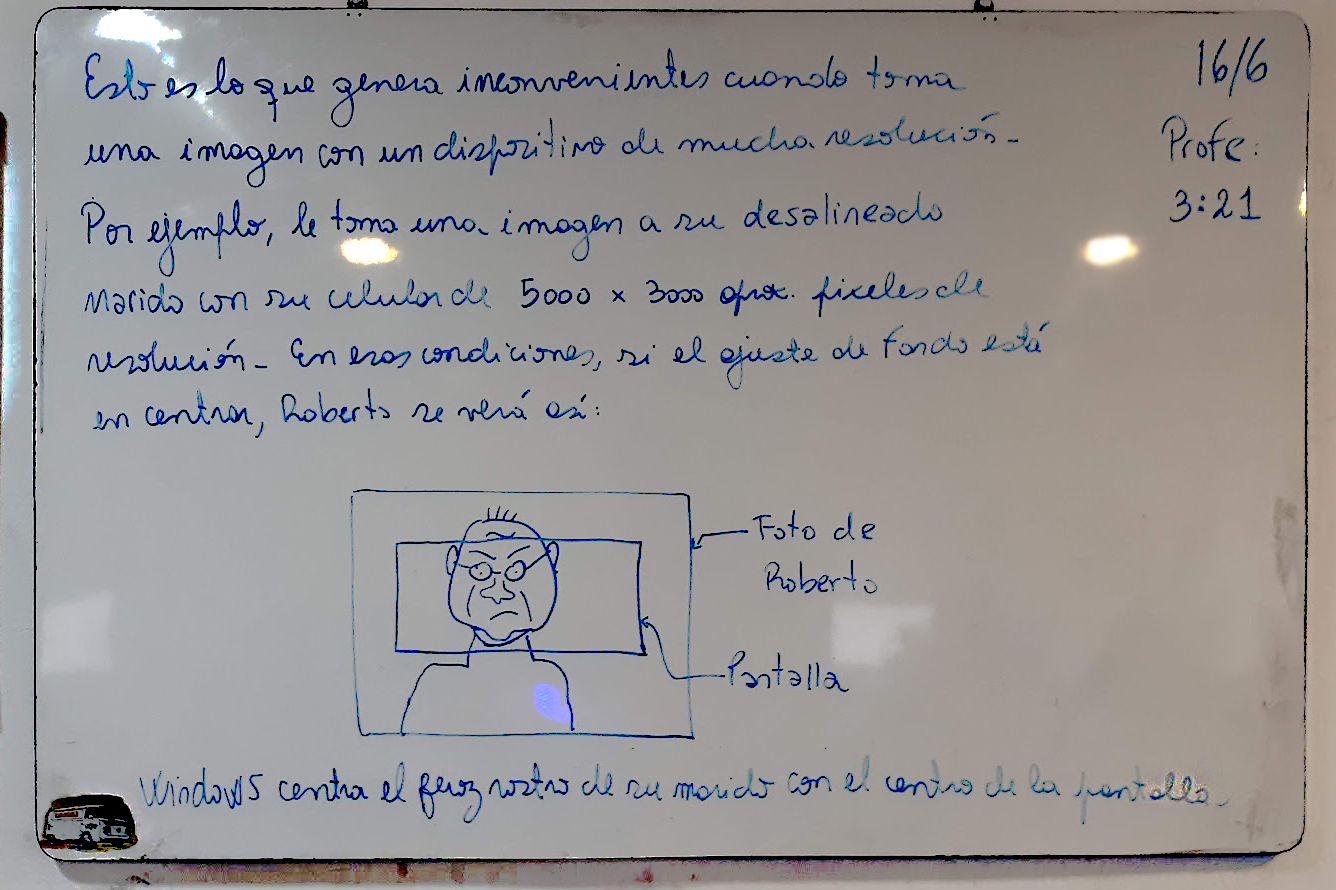 Esto es lo que genera inconvenientes cuando toma
una imagen con un dispositivo de mucha resolución-
Por ejemplo, le toma una imagen a su desalineado
marido con su celular de 5000 x 3000 aprox. pixeles de
resolución- En esas condiciones, si el ajuste de fondo está
en centrar, Roberto se verá así:
16/6
Profe:
3:21
Foto de
Roberto
Pantalla
Windows centra el feroz rostro de su marido con el centro de la pantalla-